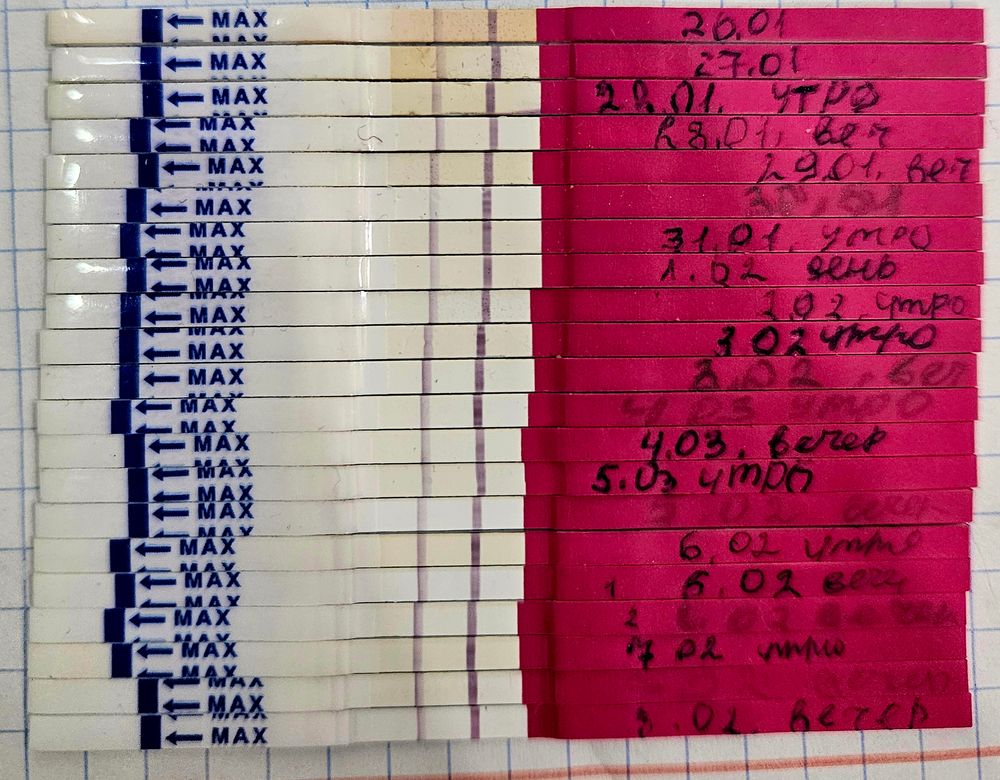 MAX 26.01
MAX 27.01
MAX 28.01. УТРО
MAX 28.01. веч
MAX 29.01. веч
MAX 30.01
MAX 31.01. утро
MAX 1.02 день
MAX 2.02 утро
MAX 3 02 утро
MAX 3.02. веч
MAX 4 03 утро
MAX 4.03. вечер
MAX 5.03 утро
MAX 02
MAX 6.02 утро
MAX 1 6.02 веч
MAX 2 6 02 вечер
MAX 7 02 утро
MAX
MAX вечер